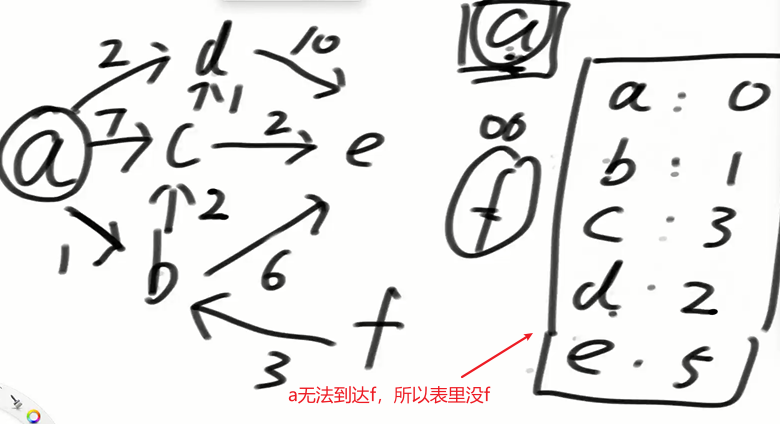 2 d 10
1
a 7 c 2 e
2
1 b 6
3 f
a
∞
f
a : 0
b : 1
c : 3
d : 2
e : 5
a无法到达f，所以表里没f